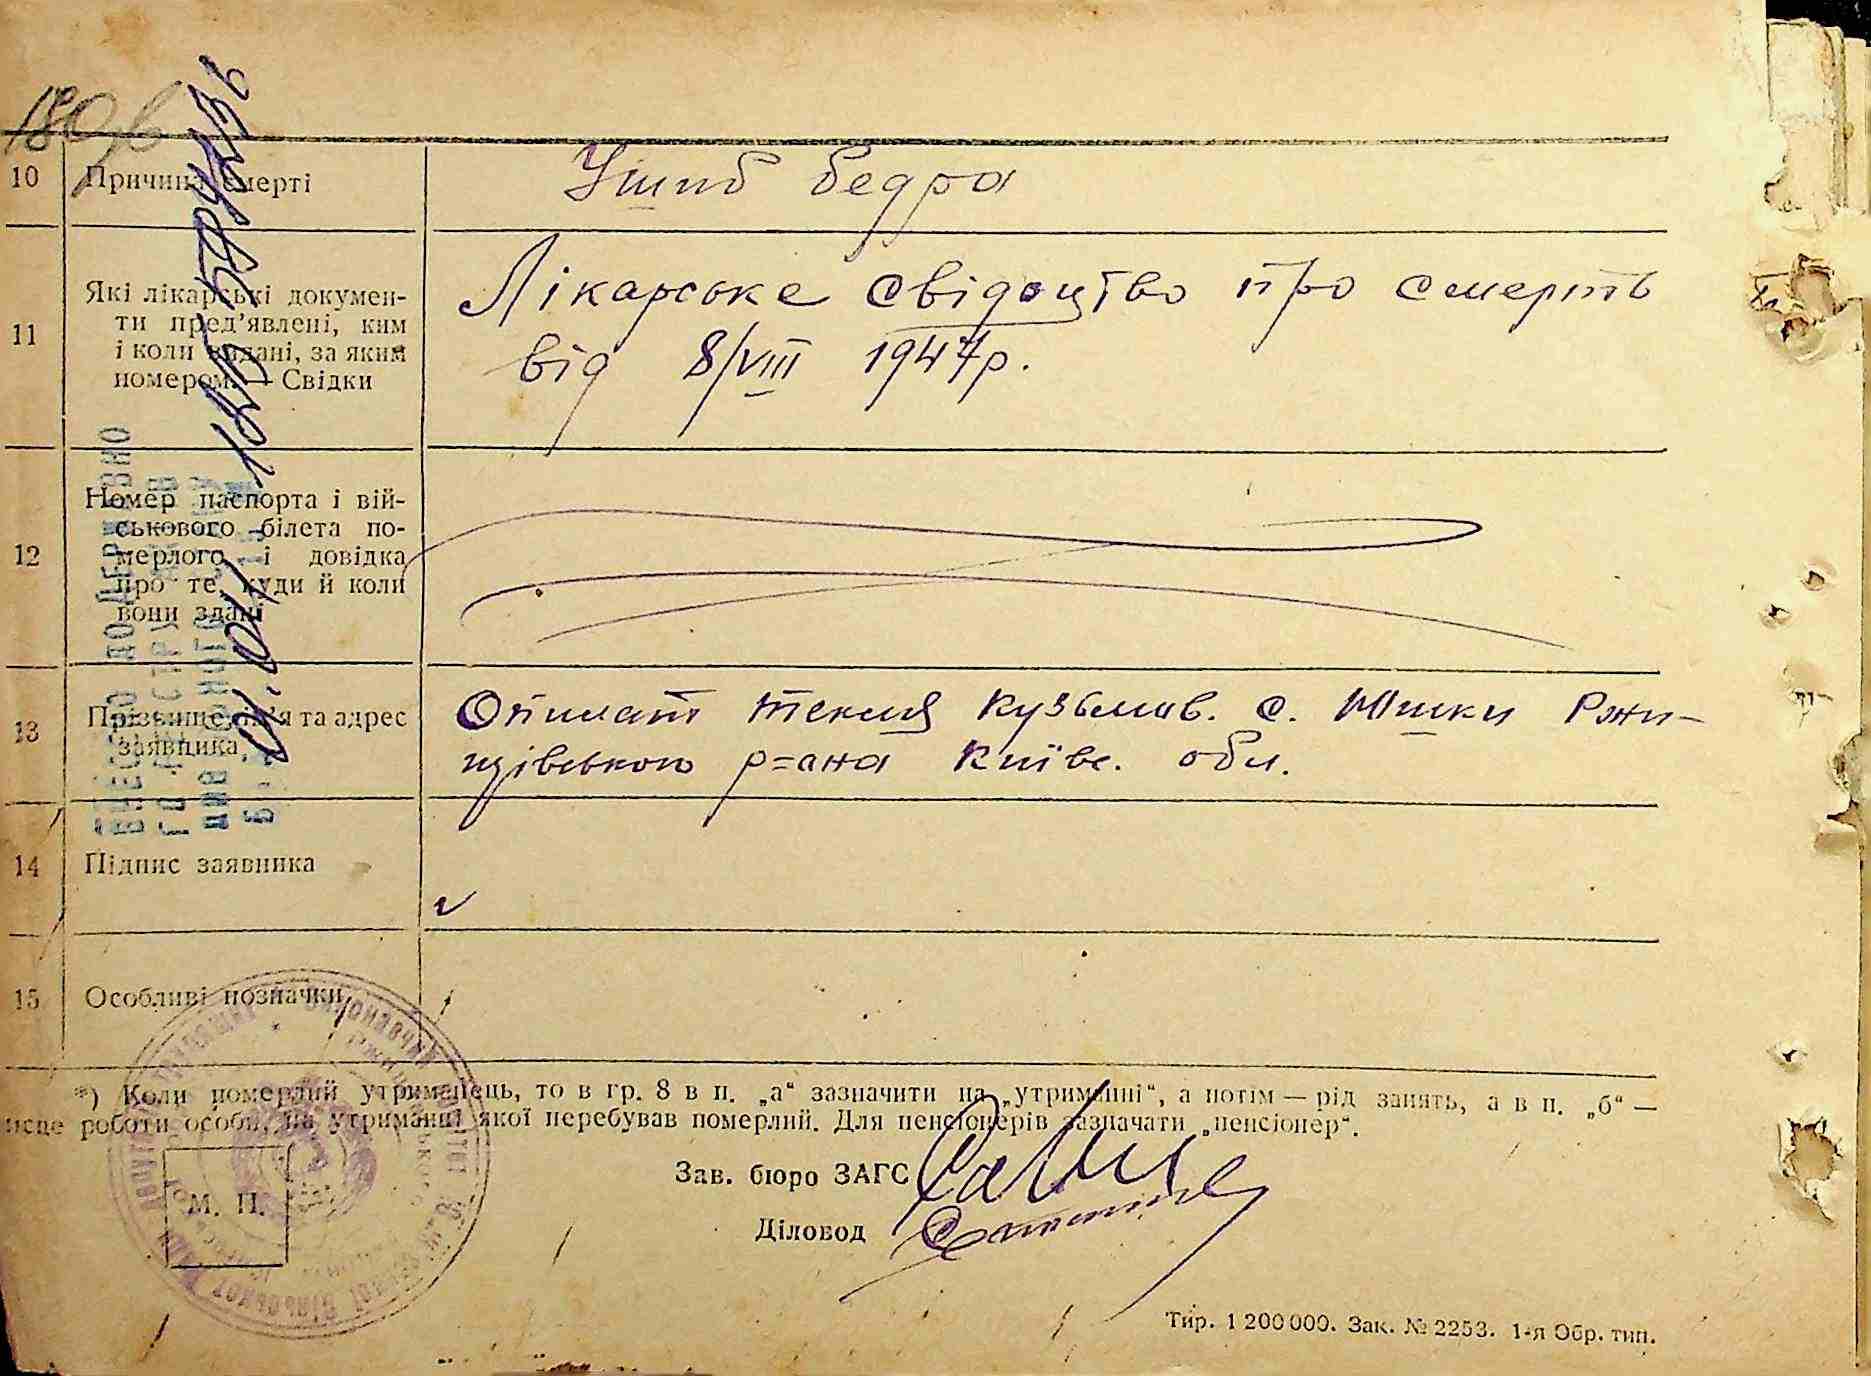 10 Причина смерті Ушиб бедра
11 Які лікарські докумен-
ти пред’явлені, ким
і коли видані, за яким
номером. — Свідки
Лікарське свідоцтво про смерть
від 8/VIII 1947р.
12 Номер паспорта і вій-
ськового білета по-
мерлого і довідка
про те, куди й коли
вони здані
13 Прізвище, ім’я та адрес
заявника
Текля Кузьмів. с. Ржи-
щівського р=ана Київс. обл.
14 Підпис заявника
15 Особливі позначки
*) Коли померлий утриманець, то в гр. 8 в п. „а“ зазначити на „утриманні“, а потім — рід занять, а в п. „б“ —
місце роботи особи, на утриманні якої перебував померлий. Для пенсіонерів зазначати „пенсіонер“.
Зав. бюро ЗАГС
Діловод
М. П.
Тир. 1 200 000. Зак. № 2253. 1-я Обр. тип.